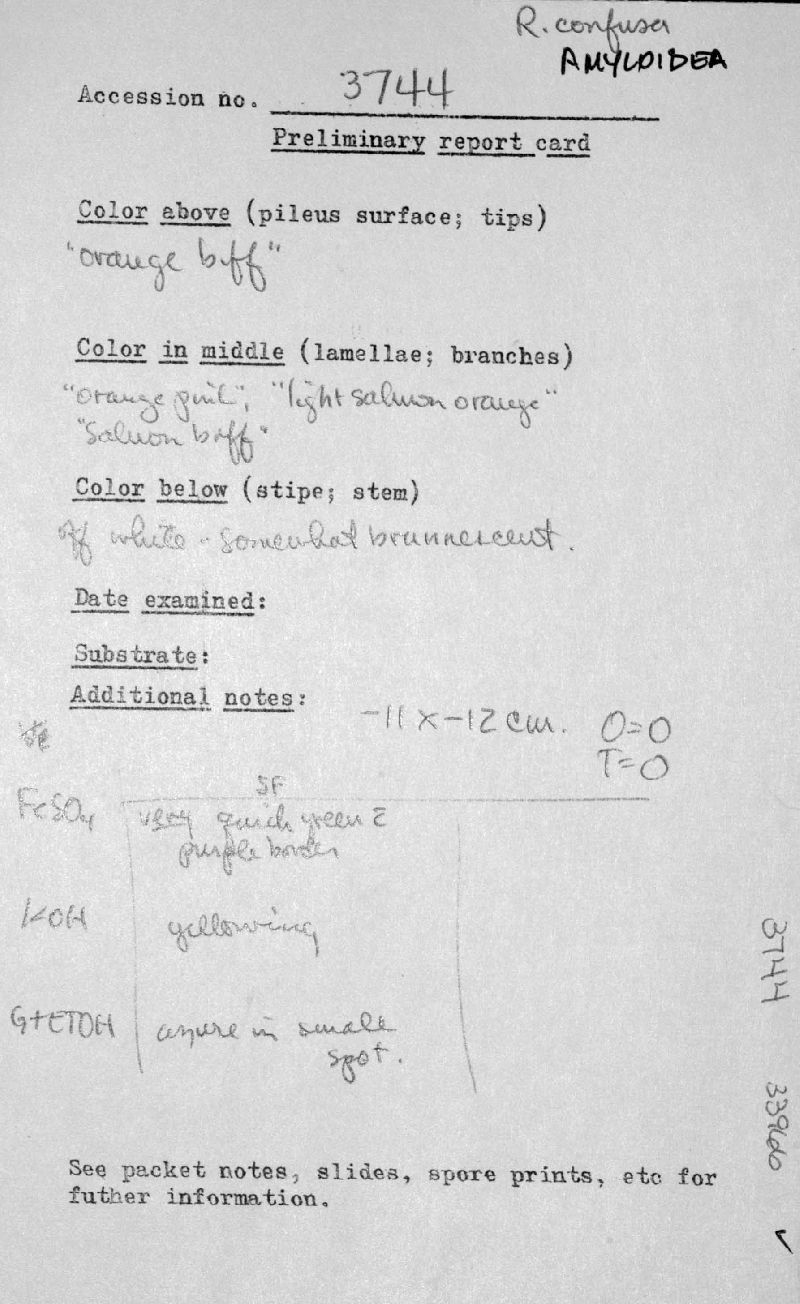 R. confusa
AMYLOIDEA
Accession no. 3744
Preliminary report card
Color above (pileus surface; tips)
"orange buff"
Color in middle (lamellae; branches)
"orange pink", "light salmon orange"
"Salmon buff"
Color below (stipe; stem)
off white - somewhat brunnescent.
Date examined:
Substrate:
Additional notes:
-11 x -12 cm. O=0
T=0
SF
FeSO4 very quick green c̄
purple border
KOH yellowing
G+ETOH azure in small
spot.
3744 33966
See packet notes, slides, spore prints, etc for
futher information.